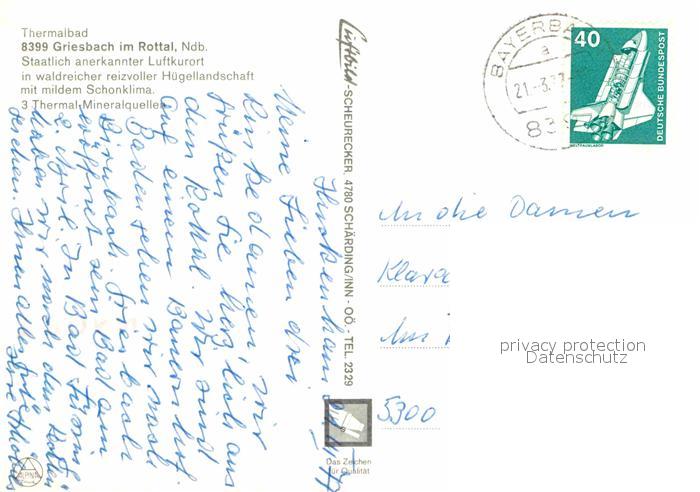 Thermalbad
8399 Griesbach im Rottal, Ndb.
Staatlich anerkannter Luftkurort
in waldreicher reizvoller Hügellandschaft
mit mildem Schonklima.
3 Thermal-Mineralquellen
Luftbild-SCHEURECKER, 4780 SCHÄRDING/INN - OÖ - TEL. 2329
BAYERBA
a
21.-3.
83
40
DEUTSCHE BUNDESPOST
WELTRAUMLABOR
Meine Lieben drei
wir
grüßen Sie herzlich aus
dem Rottal. Wir sind
auf einem Bauernhof.
Baden gehen wir nach
Birnbach. Griesbach
eröffnet sein Bad am
2. April. In Bad Füssing
haben wir noch den
An die Damen
Klara
5300
privacy protection
Datenschutz
Das Zeichen
für Qualität